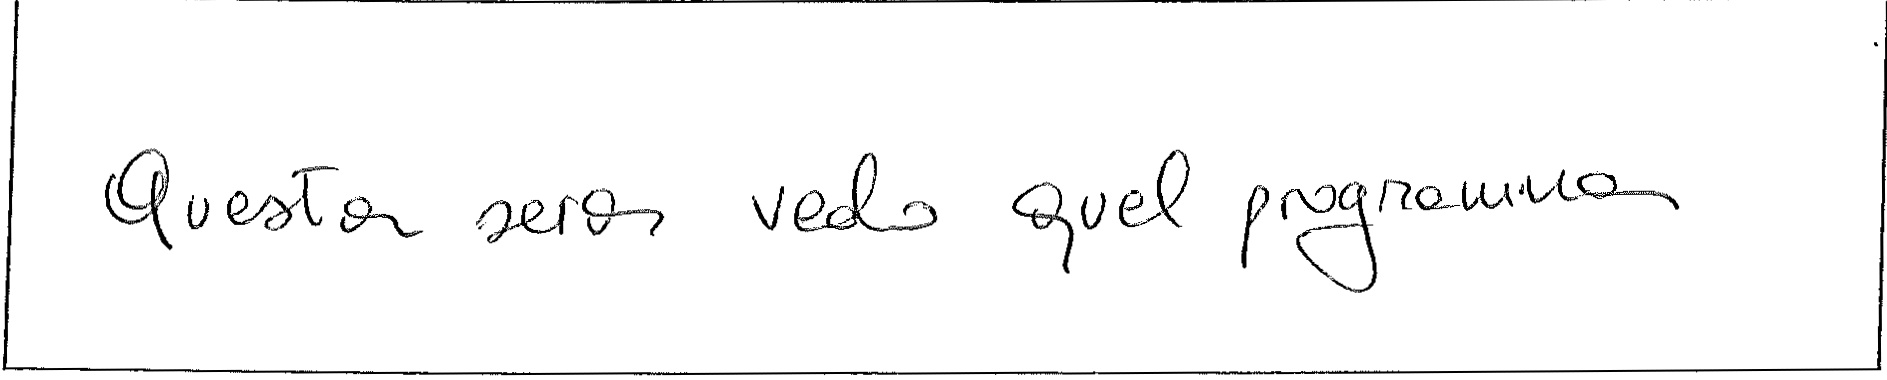 Questa sera vedo quel programma